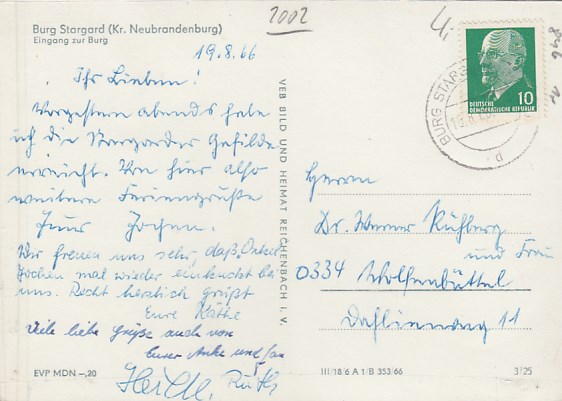 2002
Burg Stargard (Kr. Neubrandenburg)
Eingang zur Burg
19.8.66
Ihr Lieben!
Vorgestern abends habe
ich die Stargarder Gefilde
erreicht. Von hier also
weitere Feriengrüße
Euer Jochen.
Wir freuen uns sehr, daß Onkel
Jochen mal wieder einkuckt bei
uns. Recht herzlich grüßt
Eure Käthe
Viele liebe Grüße auch von
Eurer Anke und Jan
Ruth
EVP MDN -,20
VEB BILD UND HEIMAT REICHENBACH I. V.
BURG STARG
d
10
DEUTSCHE
DEMOKRATISCHE REPUBLIK
Herrn
Dr. Werner Rühberg
und Frau
0334 Wolfenbüttel
Dahlienweg 11
III/18/6 A 1/B 353/66
3/25